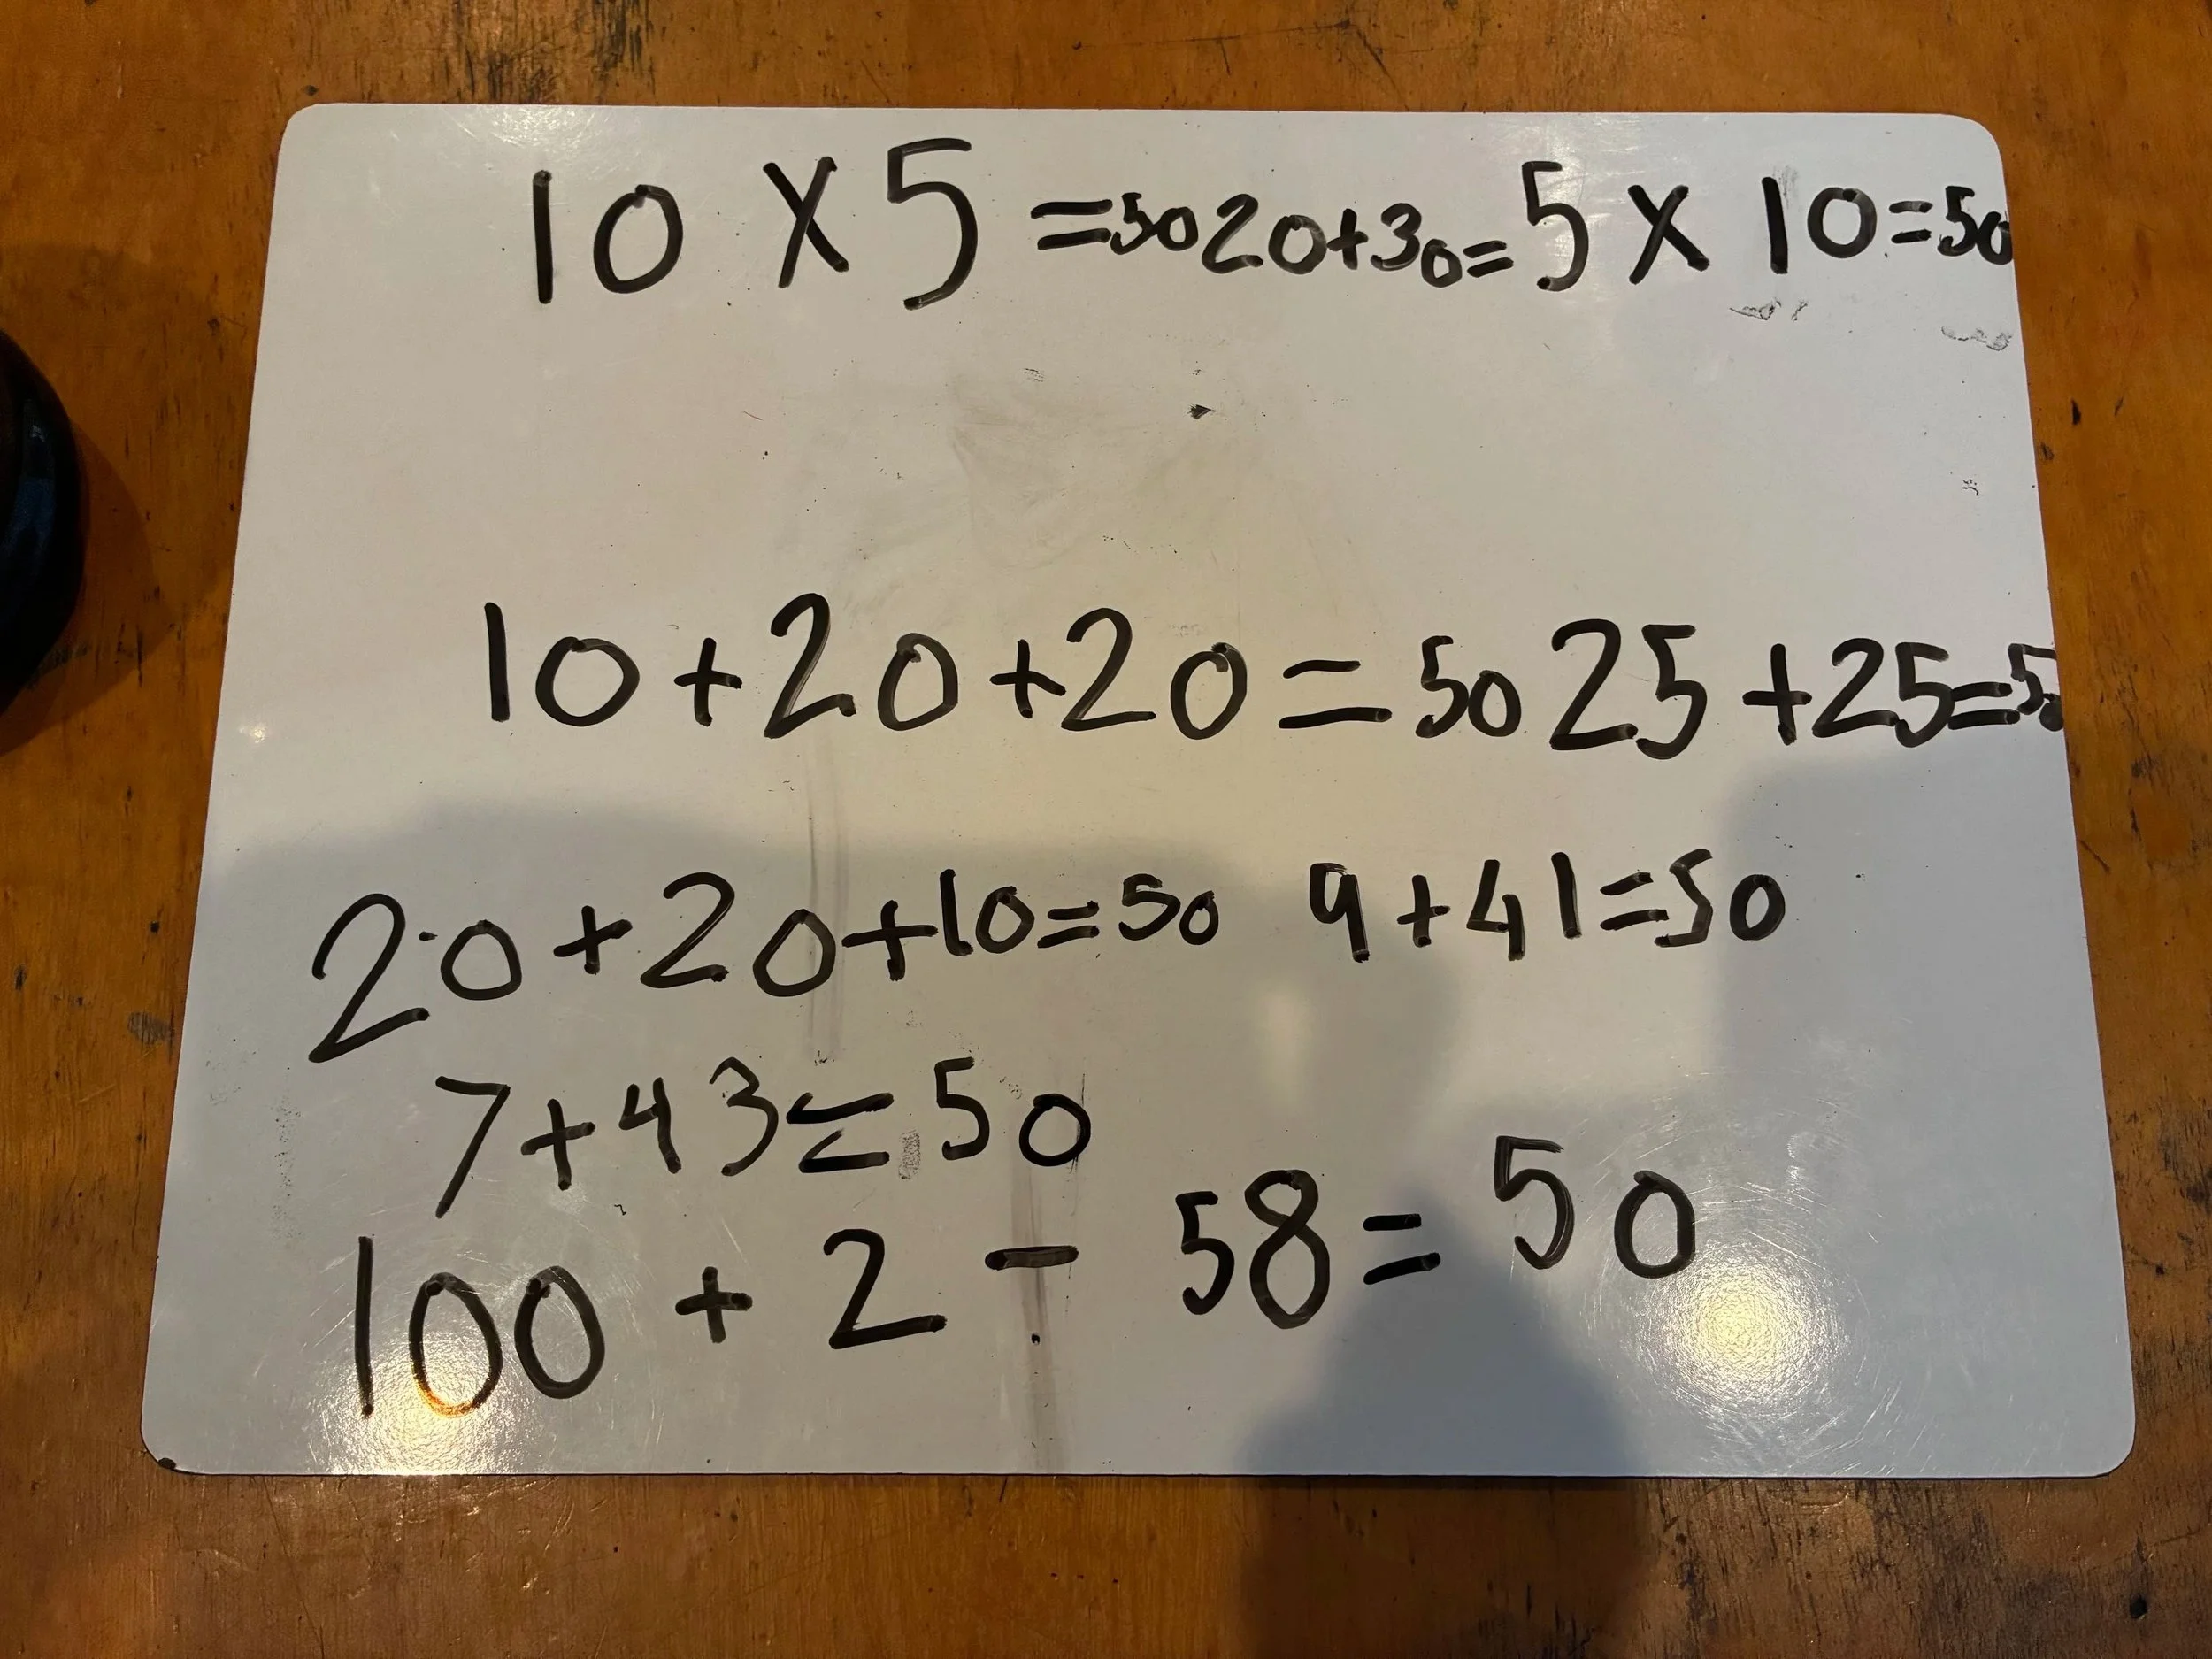 10 X 5 =50 20+30= 5 X 10=50
10+20+20= 50 25 +25=50
20+20+10=50 9+41=50
7+43=50
100 + 2 - 58= 50